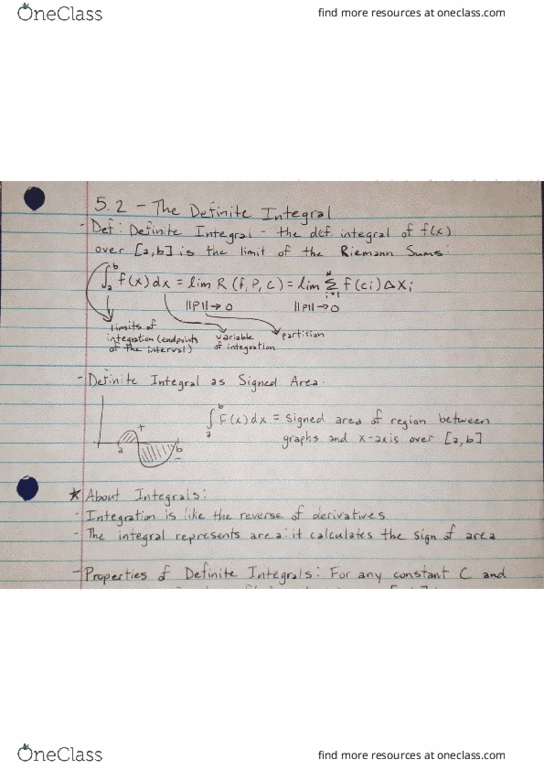 OneClass find more resources at oneclass.com
5.2 - The Definite Integral
- Def: Definite Integral - the def integral of f(x)
over [a,b] is the limit of the Riemann Sums:
∫_a^b f(x)dx = lim R (f, P, C) = lim Σ_{i=1}^N f(ci)ΔXi
||P||→0 ||P||→0
limits of integration (endpoints of the interval)
variable of integration
partition
- Definite Integral as Signed Area:
+
a b
-
∫_a^b F(x)dx = signed area of region between
graphs and x-axis over [a,b]
★ About Integrals:
- Integration is like the reverse of derivatives
- The integral represents area: it calculates the sign of area
- Properties of Definite Integrals: For any constant C and
OneClass find more resources at oneclass.com